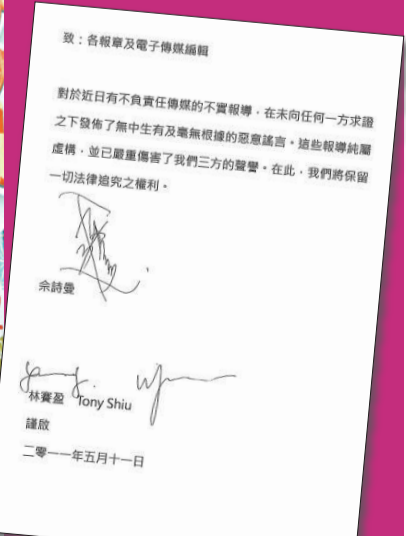 致：各報章及電子傳媒編輯
對於近日有不負責任傳媒的不實報導，在未向任何一方求證
之下發佈了無中生有及毫無根據的惡意謠言。這些報導純屬
虛構，並已嚴重傷害了我們三方的聲譽。在此，我們將保留
一切法律追究之權利。
佘詩曼
林賽盈 Tony Shiu
謹啟
二零一一年五月十一日